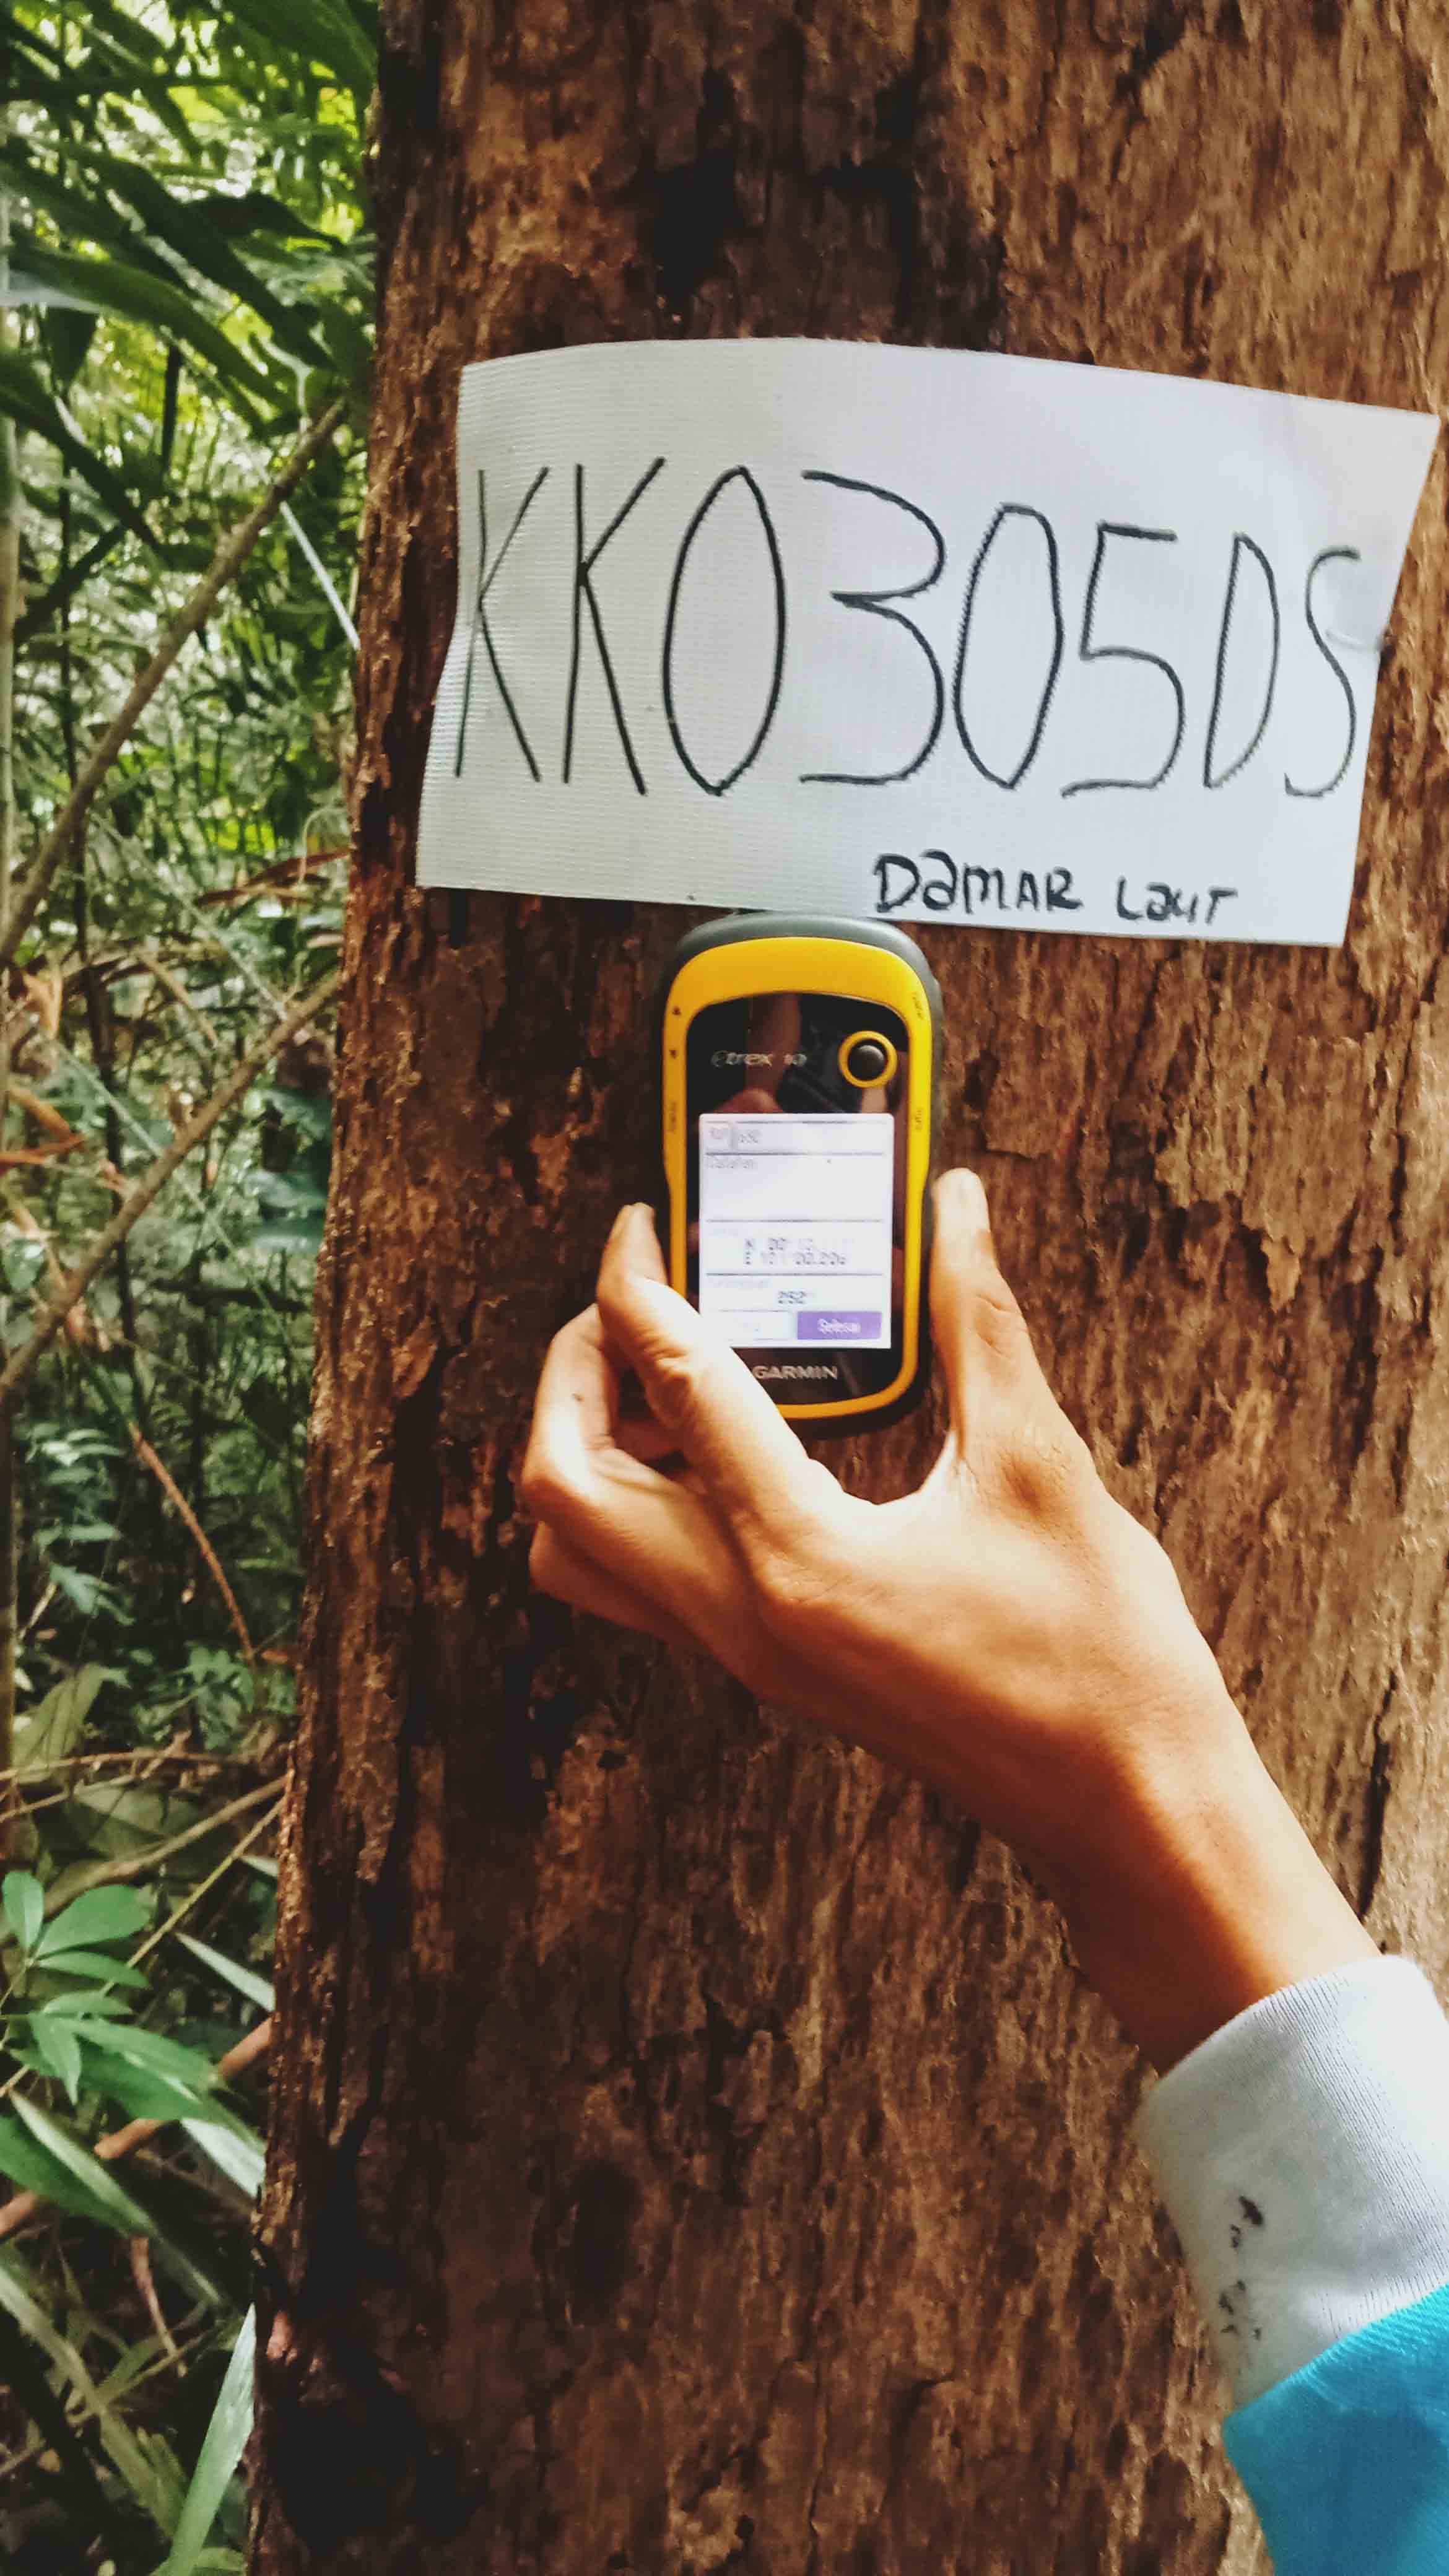 KK0305DS
Damar Laut
etrex 10
Catatan
252
Selesai
GARMIN